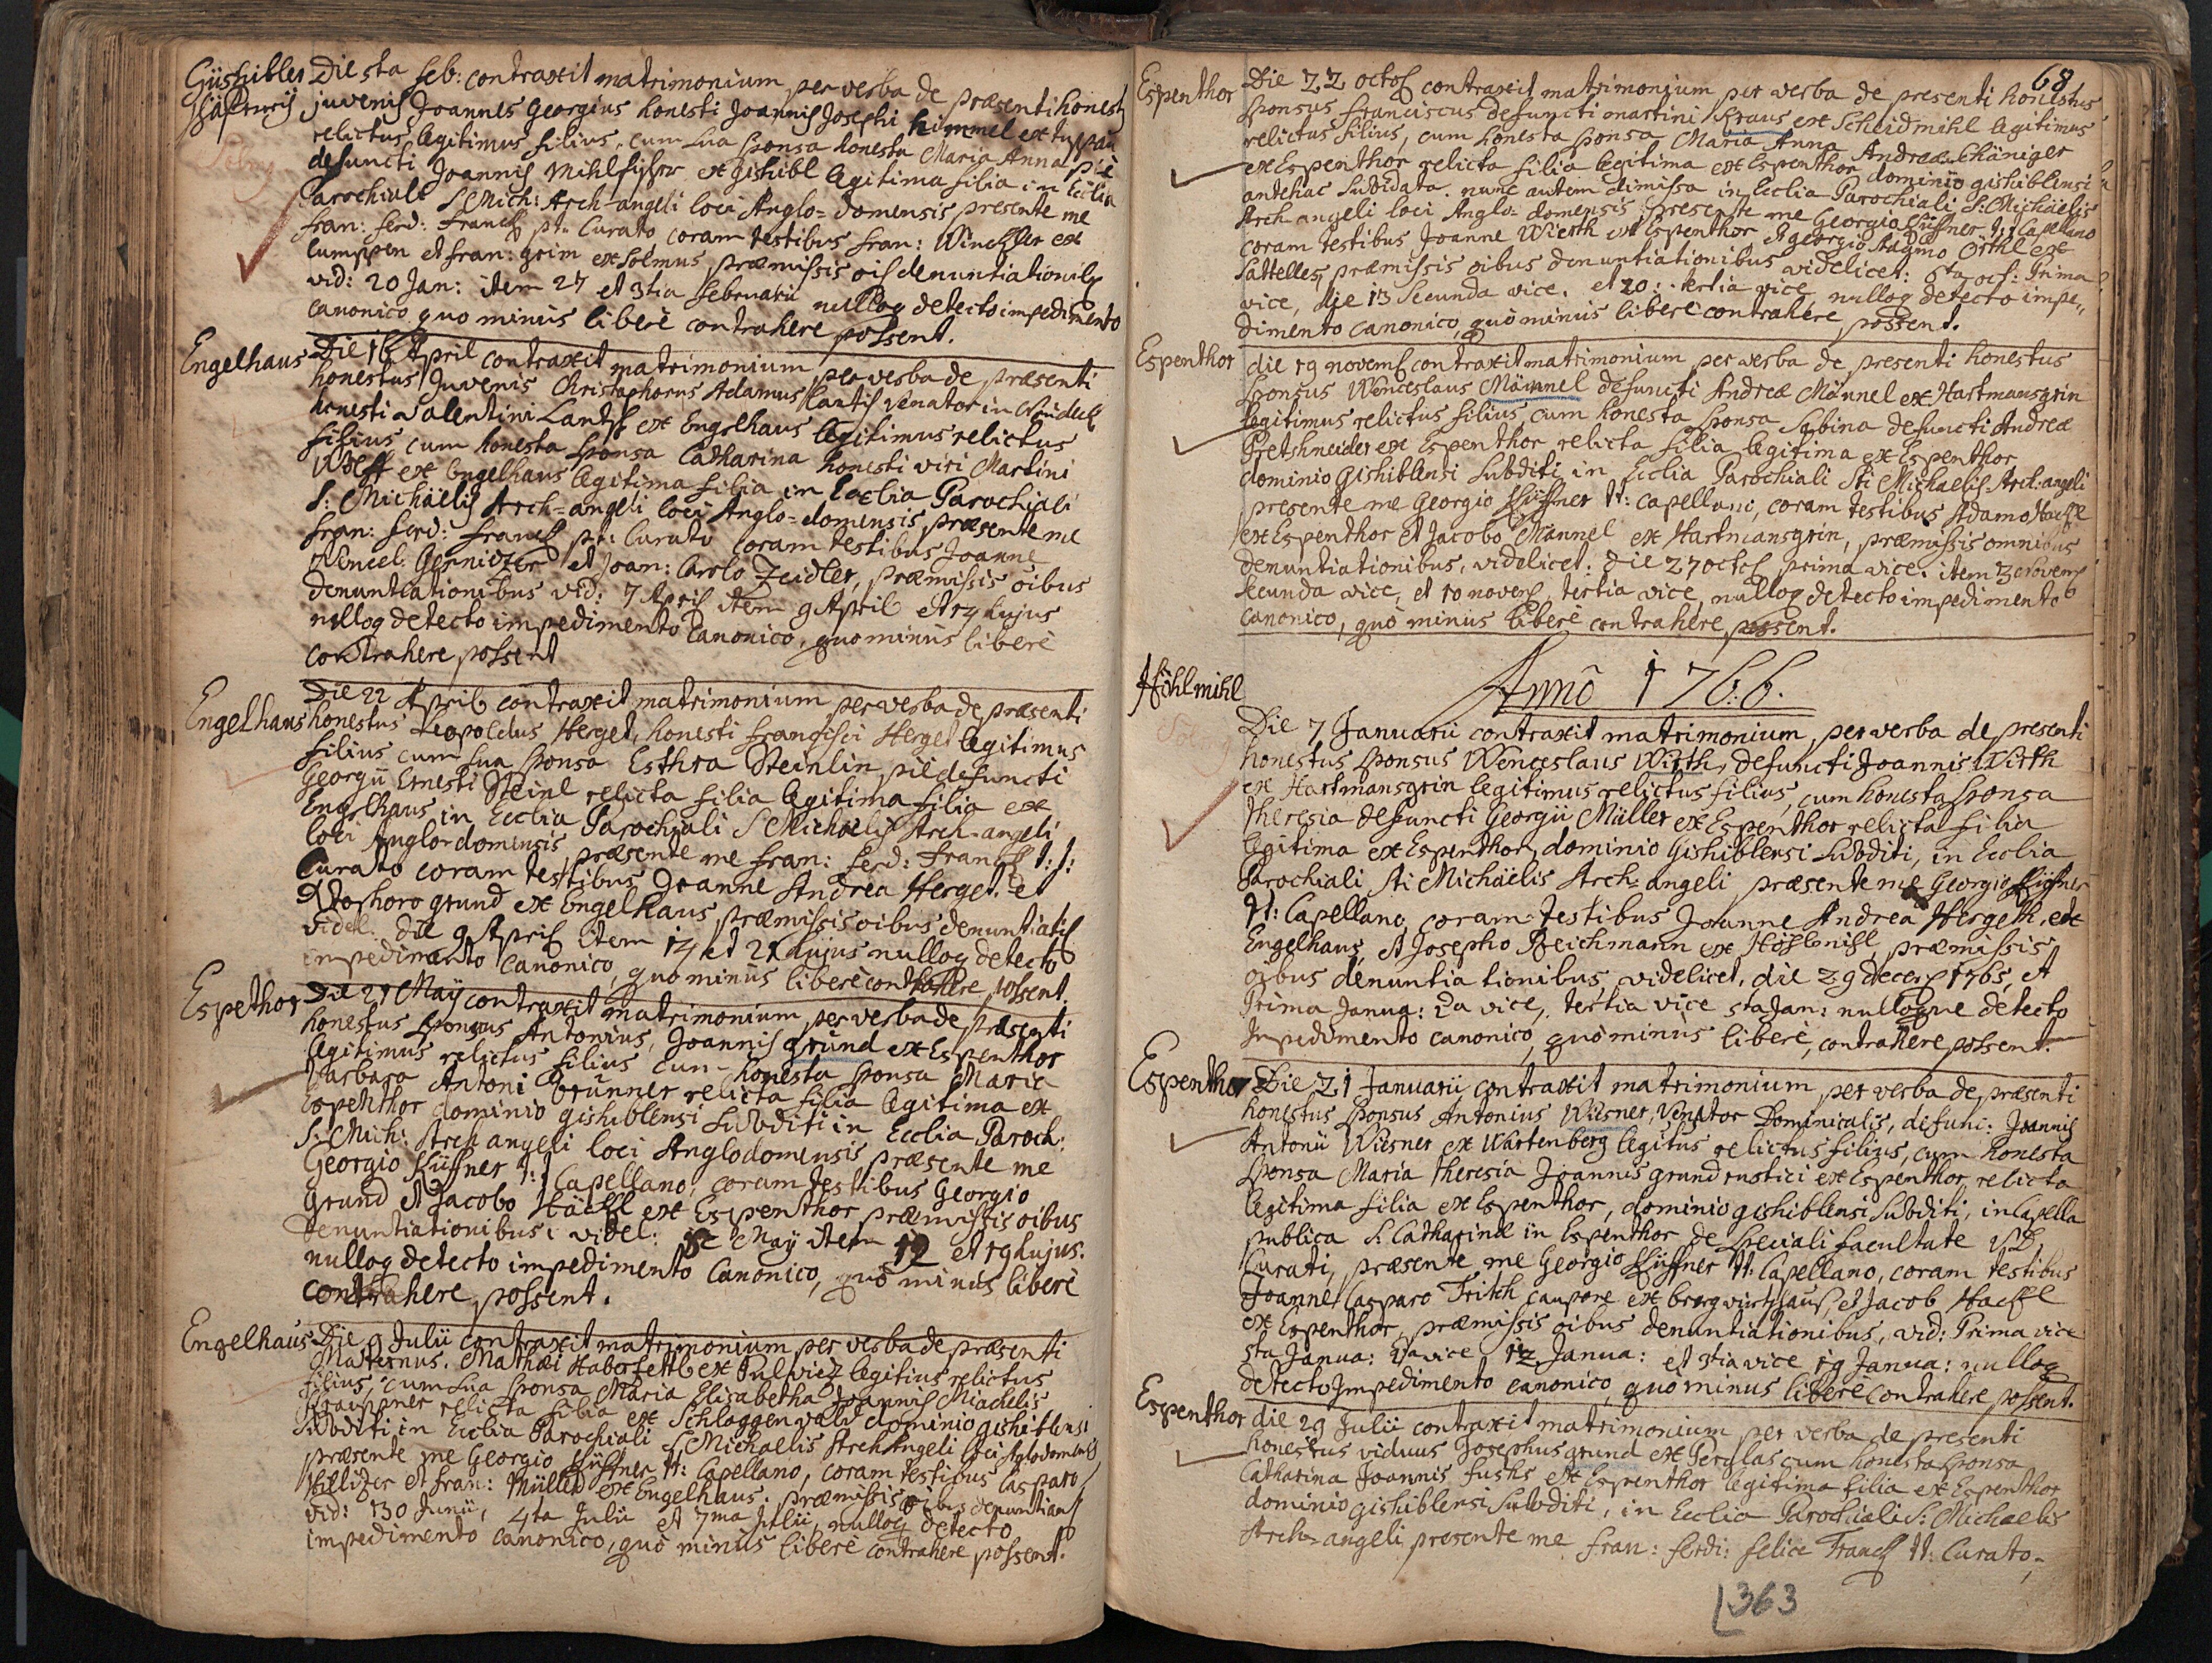 Giishibler Die 5ta feb: contraxit matrimonium per verba de præsenti honesty
juvenis Joannes Georgius honesti Joannis Josephi himmel ex
relictus legitimus filius, cum sua sponsa honesta Maria Anna pie
defuncti Joannis Mihlfisher ex gishibl legitima filia in Ecclia
Parochiali S Mich: Arch-angeli loci Anglo=domensis presente me
fran: ferd: Franck p.t. Curato coram testibus fran: Winckler ex
Lumppen et fran: grim ex Solmus præmissis oib denuntiationib
vid: 20 Jan: item 27 et 3tia februarii nulloq detecto impedimento
canonico quo minus liberè contrahere possent.
Engelhaus Die 16 April contraxit matrimonium per verba de præsenti
honestus Juvenis Christophorus Adamus Lantis venator in
honesti Valentini Lants ex Engelhaus legitimus relictus
filius, cum honesta sponsa Catharina honesti viri Martini
Wolff ex Engelhaus legitima filia in Ecclia Parochiali
S: Michäelis Arch=angeli loci Anglo=domensis, præsente me
fran: ferd: Franck p.t: Curato coram testibus Joanne
Wencel: et Joan: Carolo Zeidler, præmissis oibus
denuntiationibus vid: 7 April item 9 April et 14 hujus
nulloq detecto impedimento canonico, quo minus liberè
contrahere possent
Die 22 April contraxit matrimonium per verba de præsenti
Engelhaus honestus Leopoldus Herget, honesti francisci Herget legitimus
filius cum sua sponsa Esthra Steinlin, pie defuncti
Georgii Ernesti Steinl relicta filia legitima filia ex
Engelhaus in Ecclia Parochiali S Michäelis Arch-angeli
loci Anglo=domensis præsente me fran: ferd: Franck t:t:
Curato coram testibus Joanne Andrea Herget et
grund ex Engelhaus præmissis oibus denuntiatis
videl: die 9 April item 14 et 21 hujus nulloq detecto
impedimento canonico, quo minus liberè contrahere possent.
Espethor Die 21 Maÿ contraxit matrimonium per verba de præsenti
honestus sponsus Antonius, Joannis grund ex Espenthor
legitimus relictus filius cum honesta sponsa Maria
Barbara Antoni Brünner relicta filia legitima ex
Espenthor dominio gishiblensi subditi in Ecclia Paroch:
S: Mich: Arch angeli loci Anglodomensis præsente me
Georgio Küffner t:t Capellano, coram testibus Georgio
Grund et Jacobo Häckl ex Espenthor præmissis oibus
denuntiationibus videl: Maÿ item 12 et 19 hujus.
nulloq detecto impedimento canonico, quò minus liberè
contrahere possent.
Engelhaus Die 9 Julii contraxit matrimonium per verba de præsenti
Maternus, Mathæi Haberfettl ex legitius relictus
filius, cum sua sponsa Maria Elisabetha Joannis Miachelis
relicta filia ex Schlaggenwald dominio gishiblensi
subditi, in Ecclia Parochiali S Michaelis Arch Angeli loci Aglodomensis
præsente me Georgio Küffner t:t: Capellano, coram testibus Casparo
et fran: Müller ex Engelhaus. præmissis oibus denuntians
vid: 30 Junii, 4ta Julii et 7ma Julii, nulloq detecto
impedimento canonico, quò minùs liberè contrahere possent.
68
Espenthor Die 22 octob contraxit matrimonium per verba de presenti honestus
sponsus Franciscus defuncti martini Kraus ex Scheidmihl legitimus
relictus filius, cum honesta sponsa Maria Anna Andreæ
ex Espenthor relicta filia legitima ex Espenthor dominio gishiblensi
antehac subdata. nunc autem dimissa in Ecclia Parochiali S: Michäelis
Arch-angeli loci Anglo=domensis. Presente me Georgio Küffner t:t Capellano
coram testibus Joanne Wierth ex Espenthor et georgio Adamo Örthl ex
Sattelles, præmissis oibus denuntiationibus videlicet: 6ta oct: Prima
vice, die 13 Secunda vice, et 20: tertia vice, nulloq detecto impe„
dimento canonico, quò minùs liberè contrahere possent.
Espenthor die 19 novemb contraxit matrimonium per verba de presenti honestus
sponsus Wenceslaus Männel defuncti Andreæ Männel ex Hartmansgrin
legitimus relictus filius, cum honesta sponsa Sabina defuncti Andreæ
Pretshneider ex Espenthor relicta filia legitima ex Espenthor
dominio Gishiblensi subditi in Ecclia Parochiali Sti Michaelis. Arch:angeli
presente me Georgio Küffner tt: capellano, coram testibus Adamo Hackl
ex Espenthor et Jacobo Mannel ex Hartmansgrin, præmissis omnibus
denuntiationibus, videlicet: die 27 octob prima vice. item 3 Novemb
secunda vice, et 10 novemb, tertia vice, nulloq detecto impedimento
canonico, quò minus liberè contrahere possent.
Annô 1766.
Höhlmihl
Die 7 Januarii contraxit matrimonium, per verba de presenti
honestus sponsus Wenceslaus Wirth, defuncti Joannis Wirth
ex Hartmansgrin legitimus relictus filius, cum honesta sponsa
Theresia defuncti Georgii Müller ex Espenthor relicta filia
legitima ex Espenthor, dominio Gishiblensi subditi, in Ecclia
Parochiali Sti Michäelis Arch=angeli præsente me Georgio Küffner
tt: Capellano, coram testibus Joanne Andrea Hergeth, ex
Engelhaus, et Josepho Reichmann ex Höhlmihl, præmissis
oibus denuntiationibus, videlicet, die 29 decemb 1765, et
Prima Janua: 2da vice, tertia vice 5ta Jan: nulloque detecto
Impedimento canonico, quò minus liberè, contrahere possent.
Espenthor Die 21 Januarii contraxit matrimonium, per verba de præsenti
honestus sponsus Antonius Wiesner, Venator Dominicalis, defunc: Joannis
Antonii Wiesner ex Wartenberg legitus relictus filius, cum honesta
sponsa Maria Theresia Joannis grund rustici ex Espenthor, relicta
legitima filia ex Espenthor, dominio gishiblensi subditi, in Capella
publica S. Catharinæ in Espenthor de speciali facultate
Curati, præsente me Georgio Küffner tt: Capellano, coram testibus
Joanne Casparo Fritch caupone ex bergwirthshauß, et Jacob Hackl
ex Espenthor, præmissis oibus denuntiationibus, vid: Prima vice
5ta Janua: 2da vice 12 Janua: et 3tia vice 19 Janua: nulloq
detecto Impedimento canonico, quò minus liberè contrahere possent.
Espenthor die 29 Julii contraxit matrimonium per verba de presenti
honestus viduus Josephus grund ex Perglas cum honesta sponsa
Catharina Joannis fushs ex Espenthor legitima filia ex Espenthor
dominio gishiblensi subditi, in Ecclia Parochiali S: Michaelis
Arch=angeli, presente me Fran: ferdi: felice Franck tt: Curato,
363